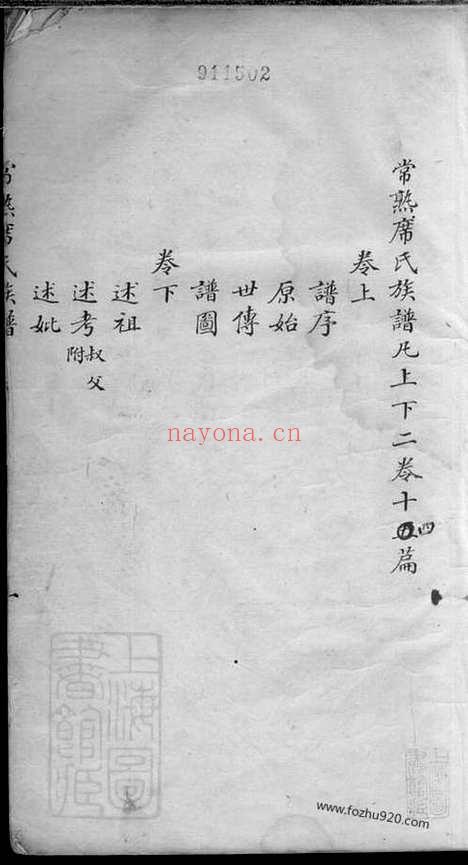 911502
常熟席氏族譜凡上下二卷十四篇
卷上
譜序
原始
世傳
譜圖
卷下
述祖
述考 附叔父
述妣
常熟席氏族譜
一
nayona.cn
上海圖書館藏
www.fozhu920.com